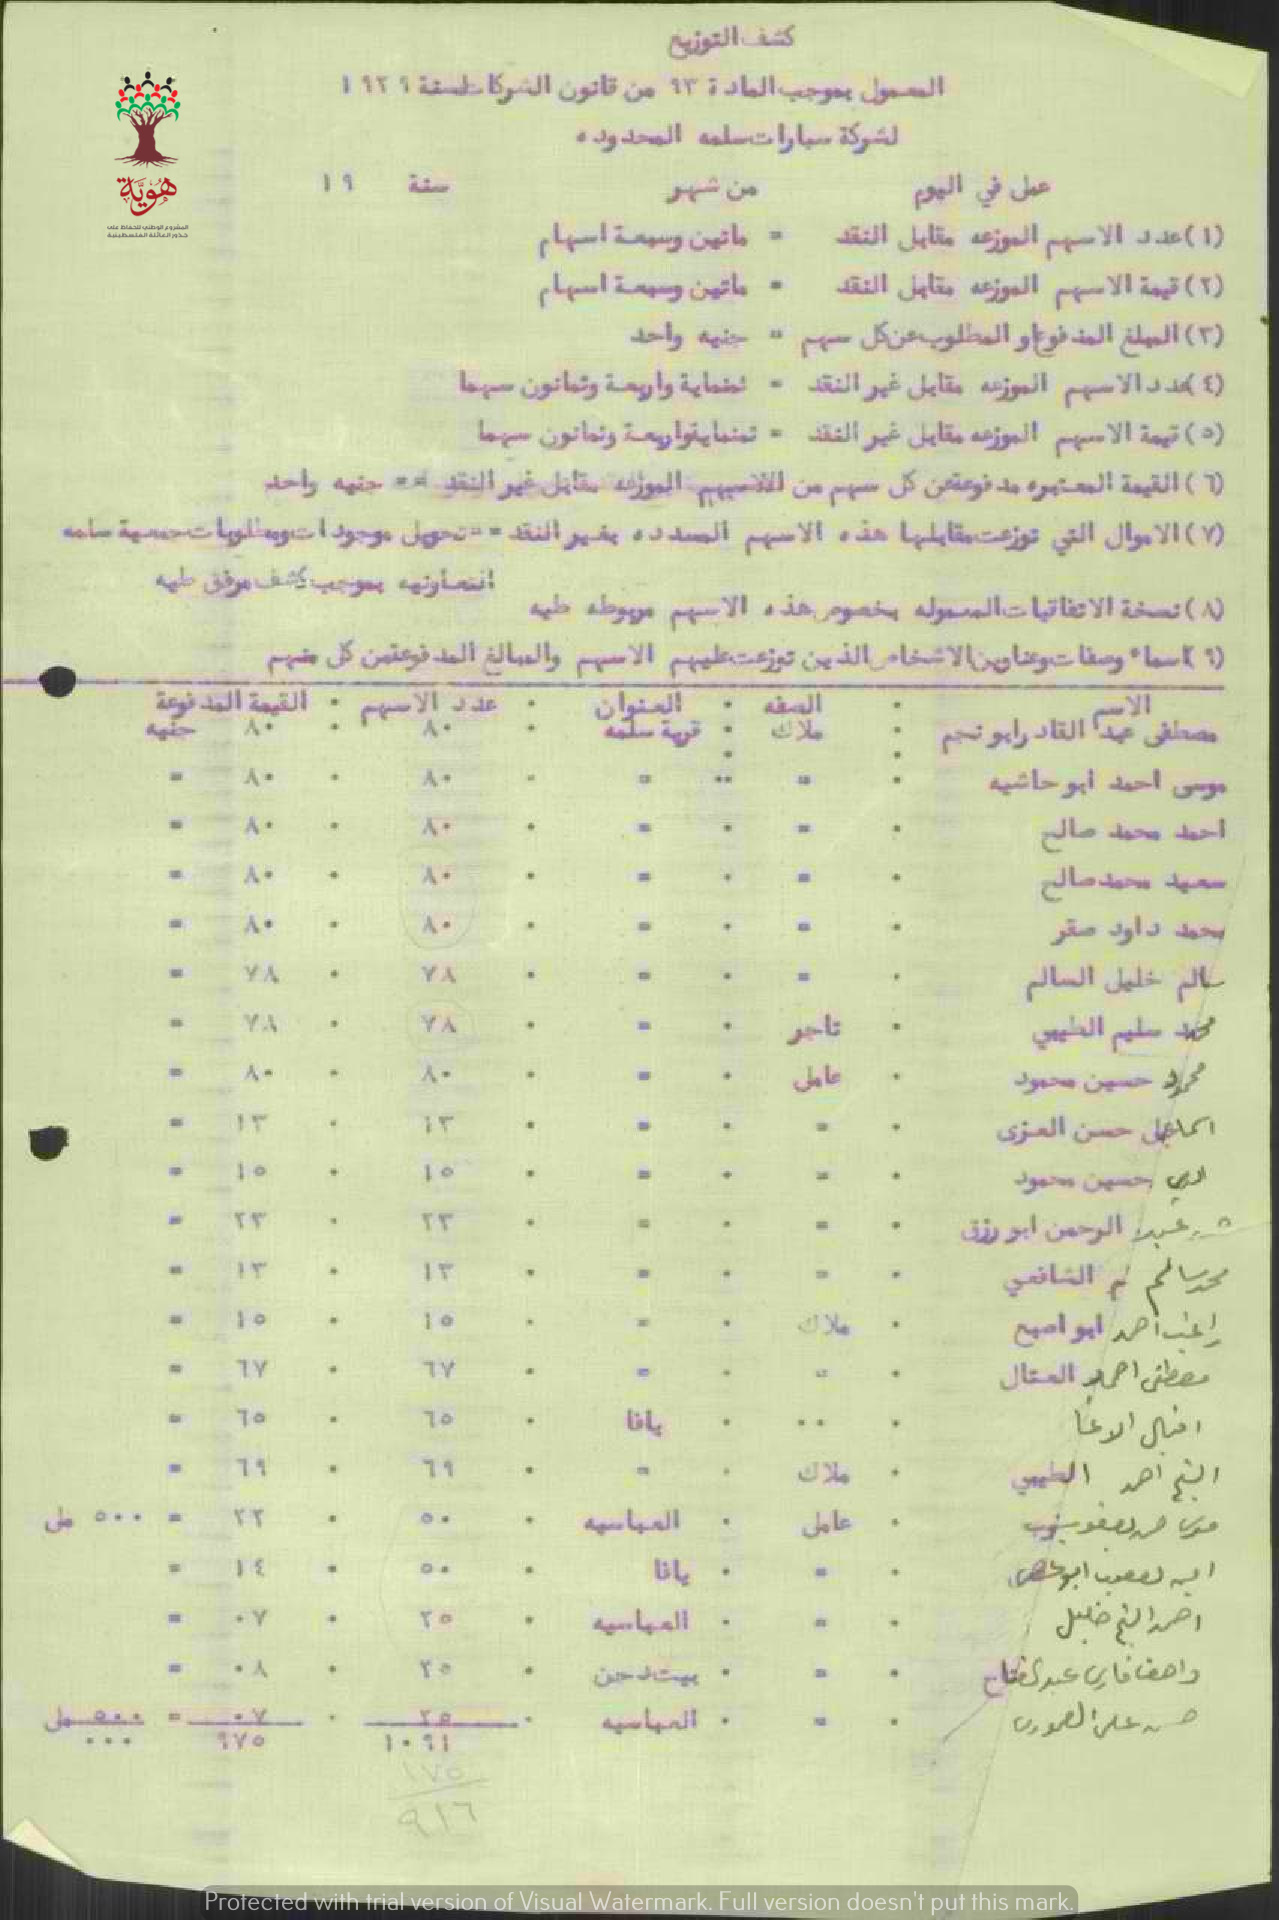 كشف التوزيع
المعمول بموجب المادة ٩٣ من قانون الشركات لسنة ١٩٢٩
لشركة سيارات سلمه المحدوده
عمل في اليوم من شهر سنة ١٩
(١) عدد الاسهم الموزعه مقابل النقد = ماتين وسبعة اسهام
(٢) قيمة الاسهم الموزعه مقابل النقد = ماتين وسبعة اسهام
(٣) المبلغ المدفوع او المطلوب عن كل سهم = جنيه واحد
(٤) عدد الاسهم الموزعه مقابل غير النقد = ثمنماية واربعة وثمانون سهما
(٥) قيمة الاسهم الموزعه مقابل غير النقد = ثمنماية واربعة وثمانون سهما
(٦) القيمة المعتبره مدفوعة عن كل سهم من الاسهم الموزعه مقابل غير النقد == جنيه واحد
(٧) الاموال التي توزعت مقابلها هذه الاسهم المسدده بغير النقد == تحويل موجودات ومطلوبات جمعية سلمه
التعاونيه بموجب كشف مرفق طيه
(٨) نسخة الاتفاقيات المعموله بخصوص هذه الاسهم مربوطه طيه
(٩) اسماء وصفات وعناوين الاشخاص الذين توزعت عليهم الاسهم والمبالغ المدفوعة من كل منهم
الاسم الصفه العنوان عدد الاسهم القيمة المدفوعة
مصطفى عبد القادر ابو نجم ملاك قرية سلمه ٨٠ ٨٠ جنيه
موسى احمد ابو حاشيه = = ٨٠ ٨٠ =
احمد محمد صالح = = ٨٠ ٨٠ =
سعيد محمد صالح = = ٨٠ ٨٠ =
محمد داود صقر = = ٨٠ ٨٠ =
سالم خليل السالم = = ٧٨ ٧٨ =
محمد سليم الطيبي تاجر = ٧٨ ٧٨ =
محمود حسين محمود عامل = ٨٠ ٨٠ =
اسماعيل حسن العزى = = ١٣ ١٣ =
حسين محمود = = ١٥ ١٥ =
عبد الرحمن ابو رزق = = ٢٣ ٢٣ =
محمد سالم الشافعي = = ١٣ ١٣ =
راغب احمد ابو اصبع ملاك = ١٥ ١٥ =
مصطفى احمد العتال = = ٦٧ ٦٧ =
اقبال الاغا .. يافا ٦٥ ٦٥ =
الشيخ احمد الطيبي ملاك = ٦٩ ٦٩ =
موسى يعقوب عامل العباسيه ٥٠ ٢٢ = ٥٠٠ مل
يعقوب ابو = يافا ٥٠ ١٤ =
احمد الشيخ خليل = العباسيه ٢٥ ٠٧ =
واصف فارس عبد الفتاح = بيت دجن ٢٥ ٠٨ =
حسن علي = العباسيه ٢٥ ٠٧ = ٥٠٠ مل
١٠٩١ ٩٧٥ ٠٠٠
١٧٥
٩١٦
هوية
المشروع الوطني للحفاظ على
جذور العائلة الفلسطينية
Protected with trial version of Visual Watermark. Full version doesn't put this mark.